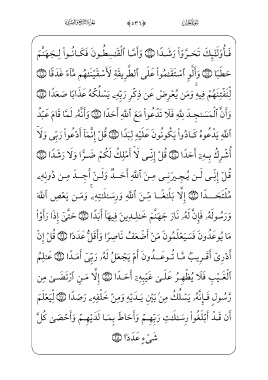 فَأُوْلَٰٓئِكَ تَحَرَّوۡاْ رَشَدٗا ١٤ وَأَمَّا ٱلۡقَٰسِطُونَ فَكَانُواْ لِجَهَنَّمَ
حَطَبٗا ١٥ وَأَلَّوِ ٱسۡتَقَٰمُواْ عَلَى ٱلطَّرِيقَةِ لَأَسۡقَيۡنَٰهُم مَّآءً غَدَقٗا ١٦
لِّنَفۡتِنَهُمۡ فِيهِۚ وَمَن يُعۡرِضۡ عَن ذِكۡرِ رَبِّهِۦ يَسۡلُكۡهُ عَذَابٗا صَعَدٗا ١٧
وَأَنَّ ٱلۡمَسَٰجِدَ لِلَّهِ فَلَا تَدۡعُواْ مَعَ ٱللَّهِ أَحَدٗا ١٨ وَأَنَّهُۥ لَمَّا قَامَ عَبۡدُ
ٱللَّهِ يَدۡعُوهُ كَادُواْ يَكُونُونَ عَلَيۡهِ لِبَدٗا ١٩ قُلۡ إِنَّمَآ أَدۡعُواْ رَبِّي وَلَآ
أُشۡرِكُ بِهِۦٓ أَحَدٗا ٢٠ قُلۡ إِنِّي لَآ أَمۡلِكُ لَكُمۡ ضَرّٗا وَلَا رَشَدٗا ٢١
قُلۡ إِنِّي لَن يُجِيرَنِي مِنَ ٱللَّهِ أَحَدٞ وَلَنۡ أَجِدَ مِن دُونِهِۦ
مُلۡتَحَدًا ٢٢ إِلَّا بَلَٰغٗا مِّنَ ٱللَّهِ وَرِسَٰلَٰتِهِۦۚ وَمَن يَعۡصِ ٱللَّهَ
وَرَسُولَهُۥ فَإِنَّ لَهُۥ نَارَ جَهَنَّمَ خَٰلِدِينَ فِيهَآ أَبَدًا ٢٣ حَتَّىٰٓ إِذَا رَأَوۡاْ
مَا يُوعَدُونَ فَسَيَعۡلَمُونَ مَنۡ أَضۡعَفُ نَاصِرٗا وَأَقَلُّ عَدَدٗا ٢٤ قُلۡ إِنۡ
أَدۡرِيٓ أَقَرِيبٞ مَّا تُوعَدُونَ أَمۡ يَجۡعَلُ لَهُۥ رَبِّيٓ أَمَدًا ٢٥ عَٰلِمُ
ٱلۡغَيۡبِ فَلَا يُظۡهِرُ عَلَىٰ غَيۡبِهِۦٓ أَحَدًا ٢٦ إِلَّا مَنِ ٱرۡتَضَىٰ مِن
رَّسُولٖ فَإِنَّهُۥ يَسۡلُكُ مِنۢ بَيۡنِ يَدَيۡهِ وَمِنۡ خَلۡفِهِۦ رَصَدٗا ٢٧ لِّيَعۡلَمَ
أَن قَدۡ أَبۡلَغُواْ رِسَٰلَٰتِ رَبِّهِمۡ وَأَحَاطَ بِمَا لَدَيۡهِمۡ وَأَحۡصَىٰ كُلَّ
شَيۡءٍ عَدَدَۢا ٢٨